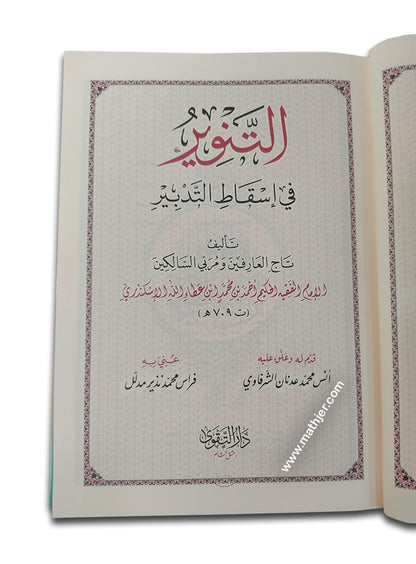 التَّنْوِيرُ
فِي إِسْقَاطِ التَّدْبِيْرِ
تَأليفُ
تَاجِ العَارِفِينَ وَمُرَبِّي السَّالِكِينَ
الإمام الفقيه الحكيم أحمد بن محمد ابن عطاء الله الإسكندري
(ت ٧٠٩ هـ)
قدّم له وعلّق عليه
أنس محمد عدنان الشرفاوي
عُنِيَ بِهِ
فراس محمد نذير مدلل
دَارُ التَّقْوَى
دمشق الشام
www.mathjer.com